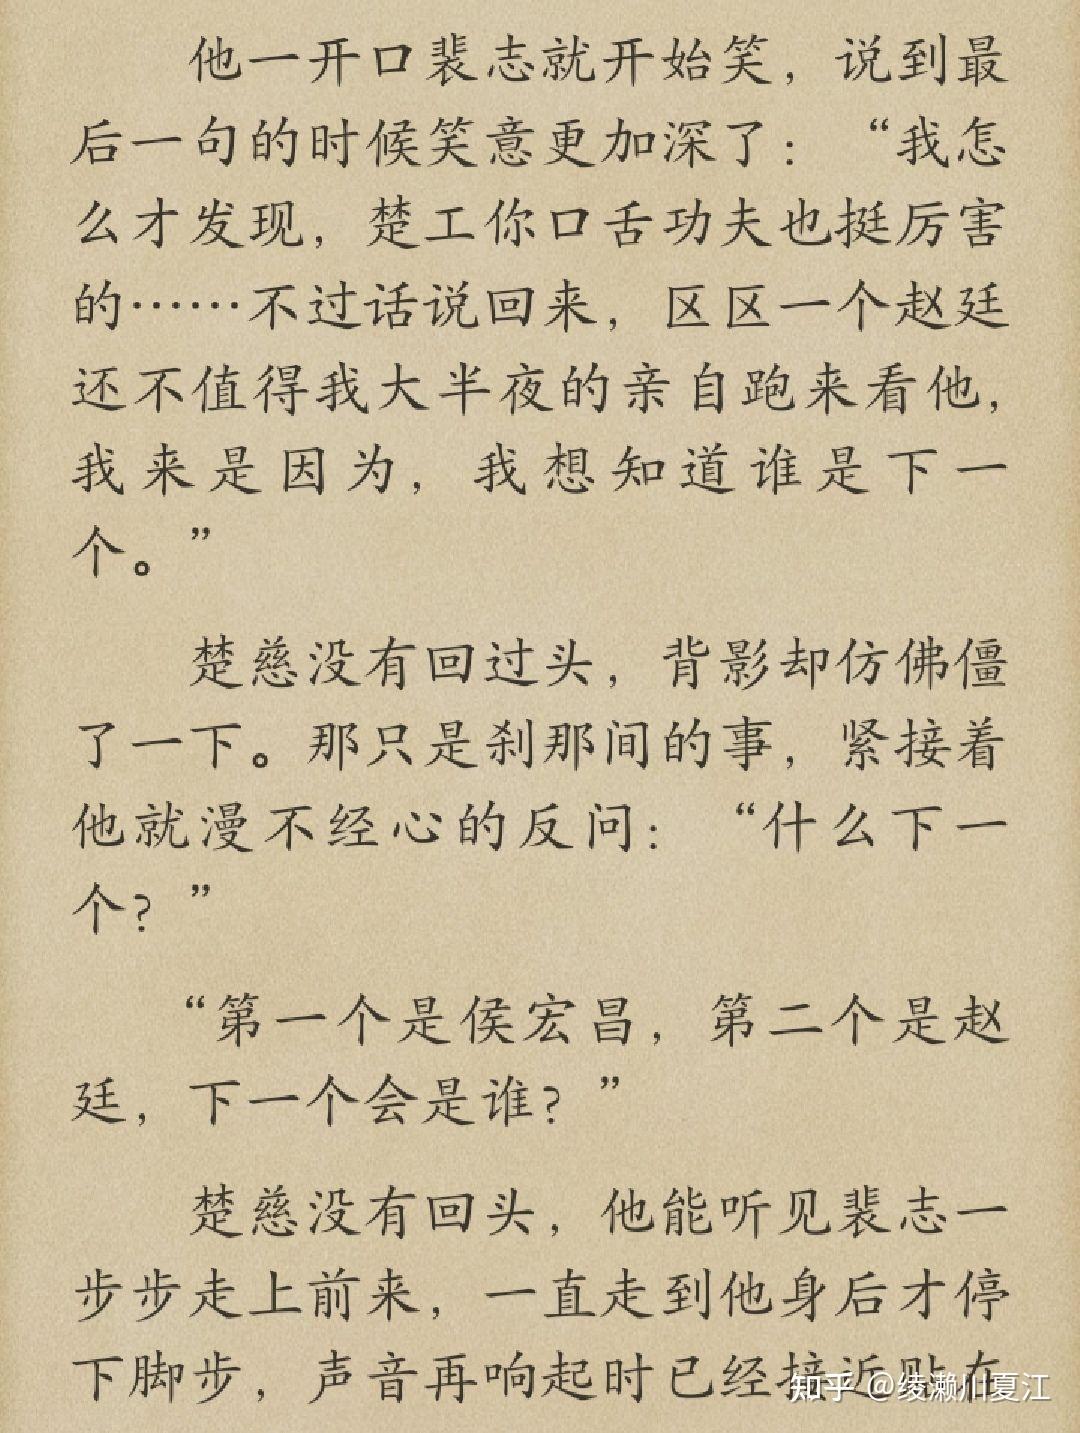 他一开口裴志就开始笑，说到最
后一句的时候笑意更加深了：“我怎
么才发现，楚工你口舌功夫也挺厉害
的……不过话说回来，区区一个赵廷
还不值得我大半夜的亲自跑来看他，
我来是因为，我想知道谁是下一
个。”
楚慈没有回过头，背影却仿佛僵
了一下。那只是刹那间的事，紧接着
他就漫不经心的反问：“什么下一
个？”
“第一个是侯宏昌，第二个是赵
廷，下一个会是谁？”
楚慈没有回头，他能听见裴志一
步步走上前来，一直走到他身后才停
下脚步，声音再响起时已经接近贴在
知乎 @绫濑川夏江